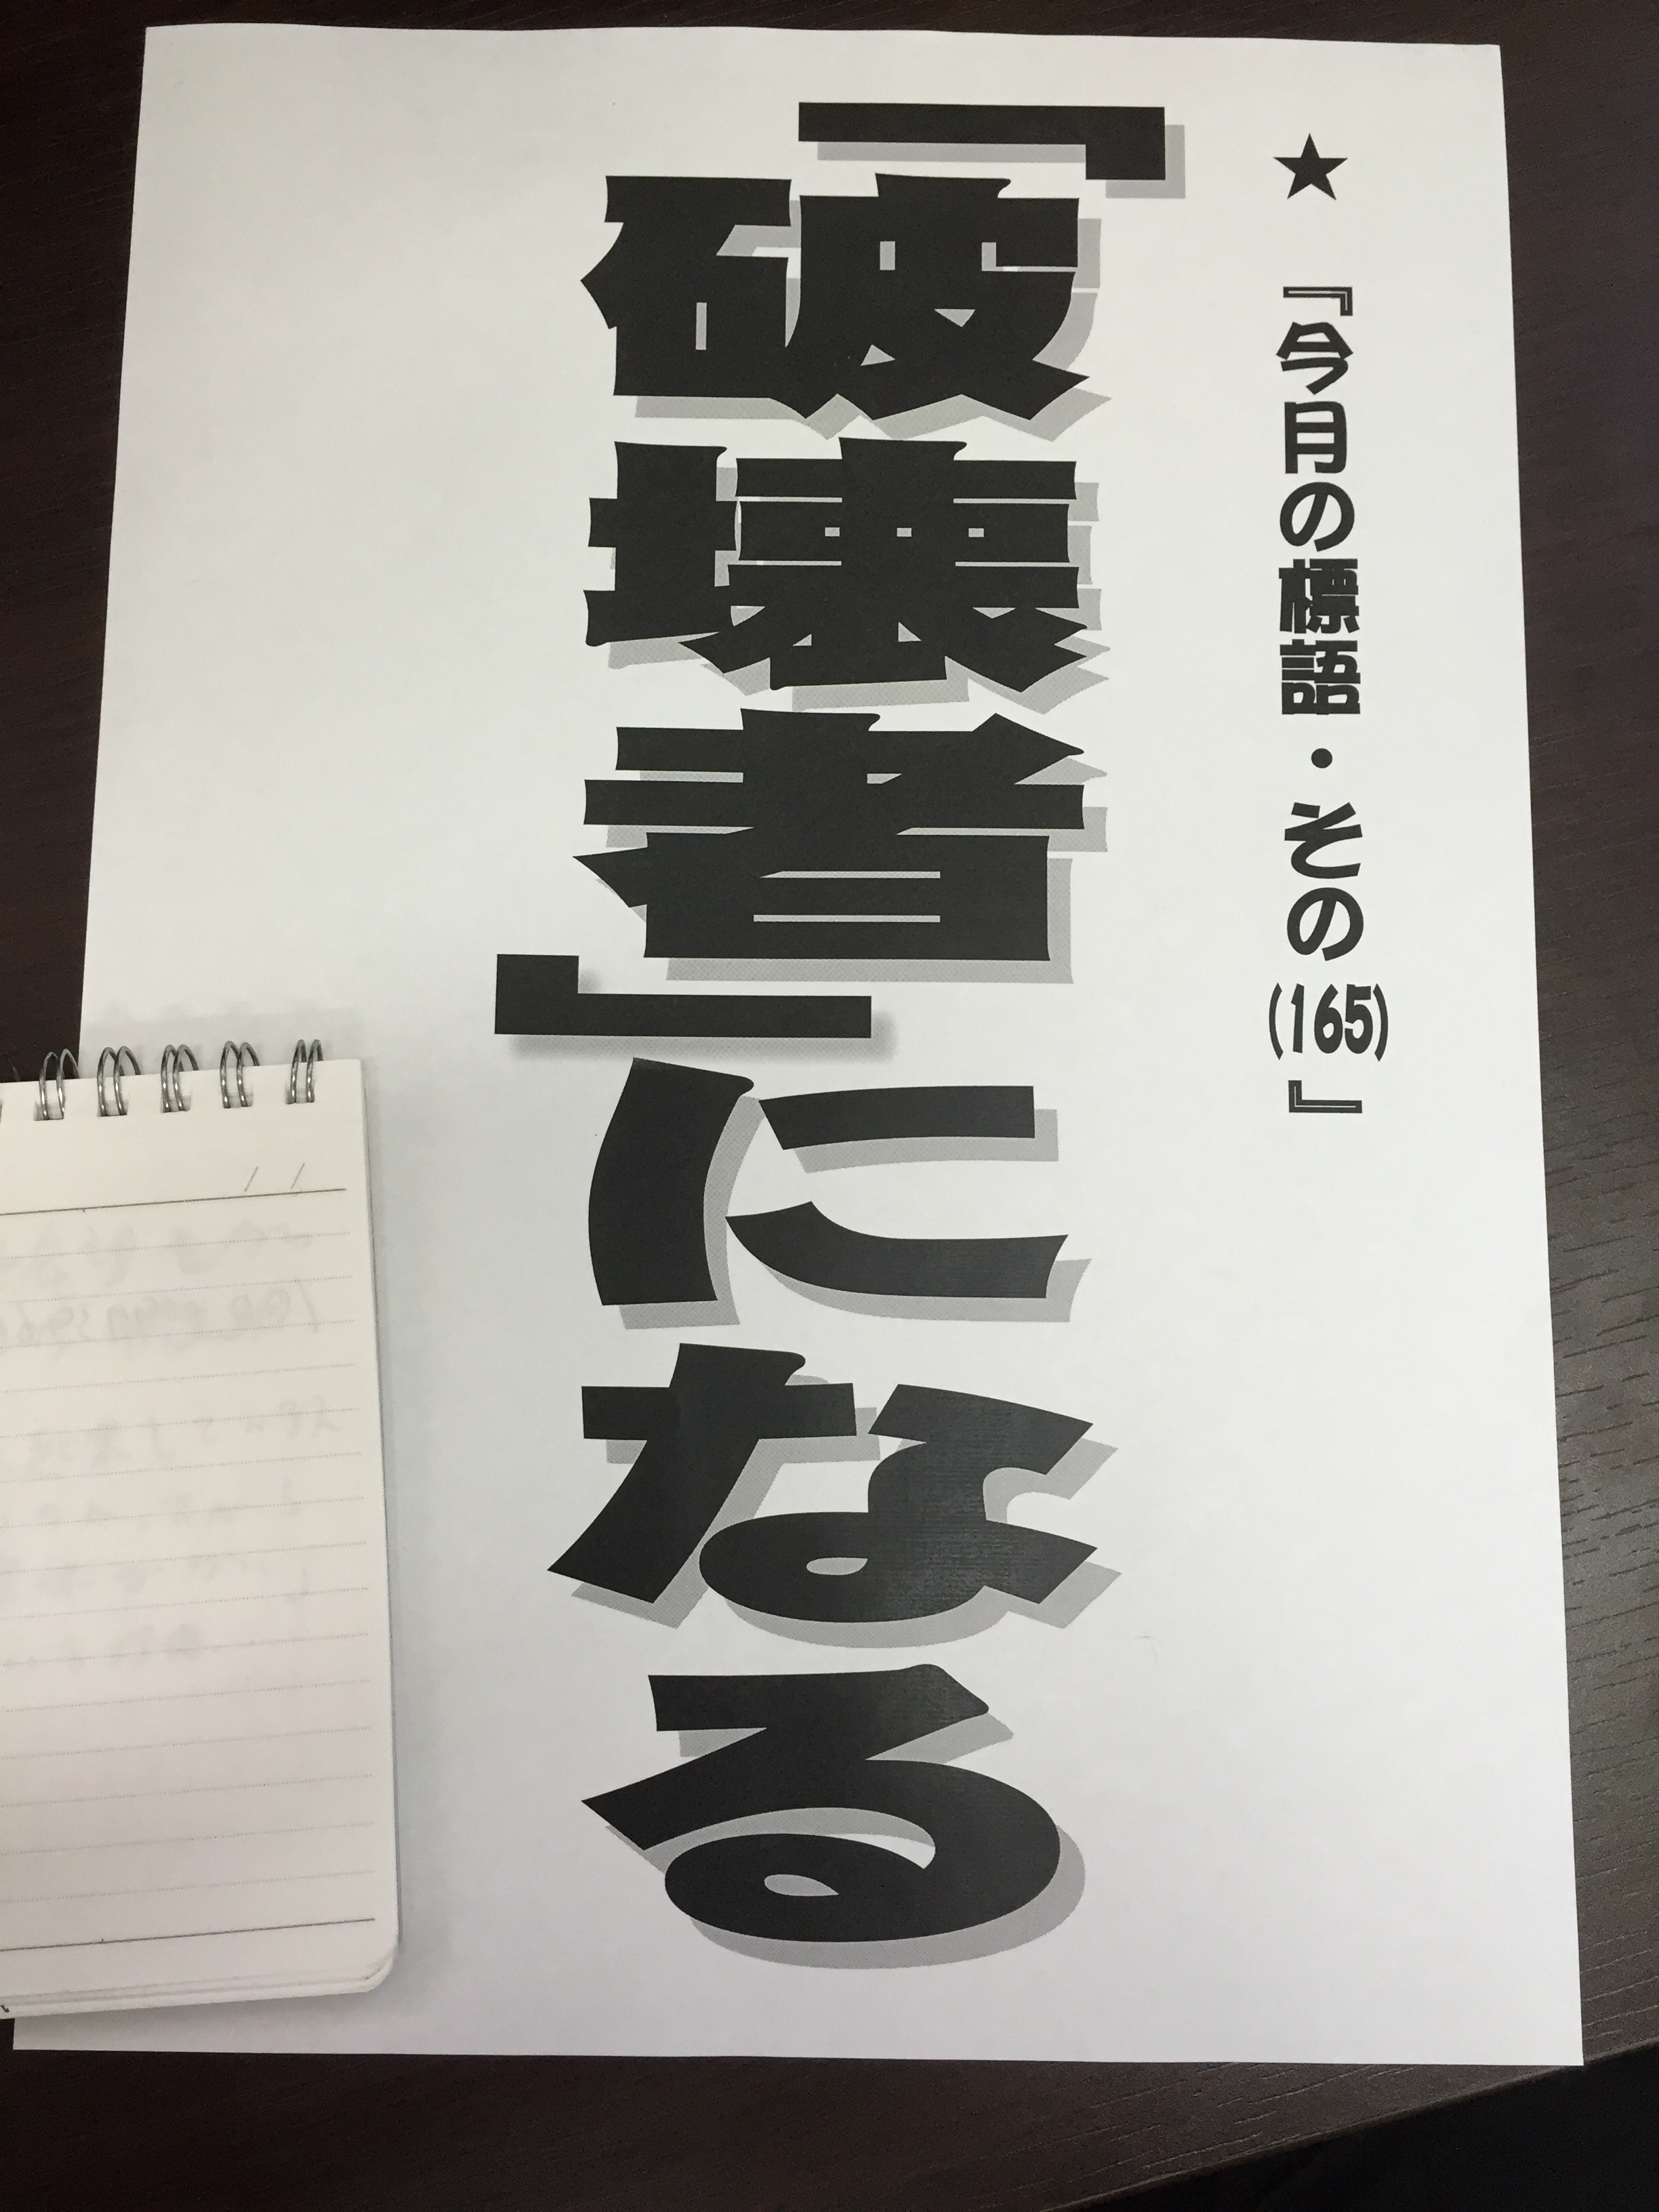 ★ 『今月の標語・その(165)』
「破壊者」になる